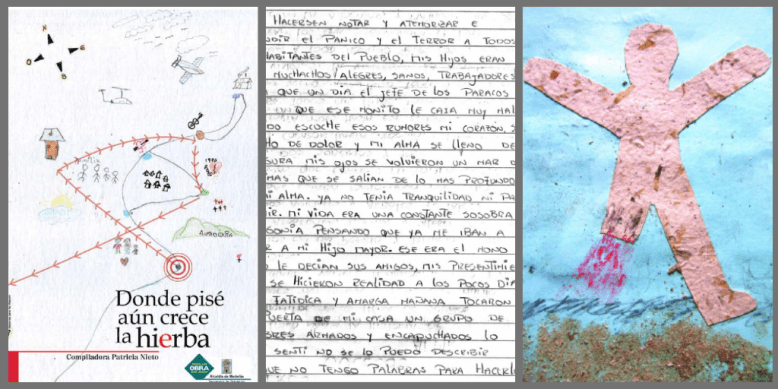 Donde pisé
aún crece
la hierba
Compiladora Patricia Nieto
OBRA
Alcaldía de Medellín
HACERSEN NOTAR Y ATEMORIZAR E
DIR EL PANICO Y EL TERROR A TODOS
HABITANTES DEL PUEBLO, MIS HIJOS ERAN
MUCHACHOS ALEGRES, SANOS, TRABAJADORES
QUE UN DIA EL JEFE DE LOS PARACOS
QUE ESE MONITO LE CAIA MUY MAL
DO ESCUCHE ESOS RUMORES MI CORAZON, S
HO DE DOLOR Y MI ALMA SE LLENO DE
SURA MIS OJOS SE VOLVIERON UN MAR D
MAS QUE SE SALIAN DE LO MAS PROFUNDO
MI ALMA. YA NO TENIA TRANQUILIDAD NI PA
IR. MI VIDA ERA UNA CONSTANTE SOSOBRA
GONIA PENSANDO QUE YA ME IBAN A
R A MI HIJO MAYOR. ESE ERA EL MONO
LE DECIAN SUS AMIGOS, MIS PRESENTIMIE
SE HICIERON REALIDAD A LOS POCOS DIA
FATIDICA Y AMARGA MAÑANA TOCARON
PUERTA DE MI CASA UN GRUPO DE
BRES ARMADOS Y ENCAPUCHADOS LO
SENTI NO SE LO PUEDO DESCRIBIR
UE NO TENGO PALABRAS PARA HACERL